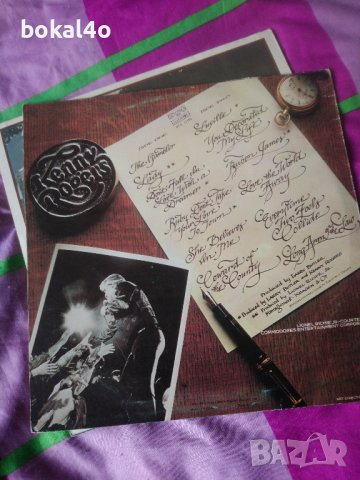 bokal4o
Kenny
Rogers
SIDE ONE
The Gambler
Lady
Don't Fall In
Love With A
Dreamer
Ruby, Don't Take
Your Love
To Town
She Believes
In Me
Coward of
the County
SIDE TWO
Lucille
You Decorated
My Life
Reuben James
Love the World
Away
Every Time
Two Fools
Collide
Long Arm of the Law
Produced by Larry Butler
LIONEL RICHIE JR.-COURTE
COMMODORES ENTERTAINMENT CORPOR
BAZAR
bg